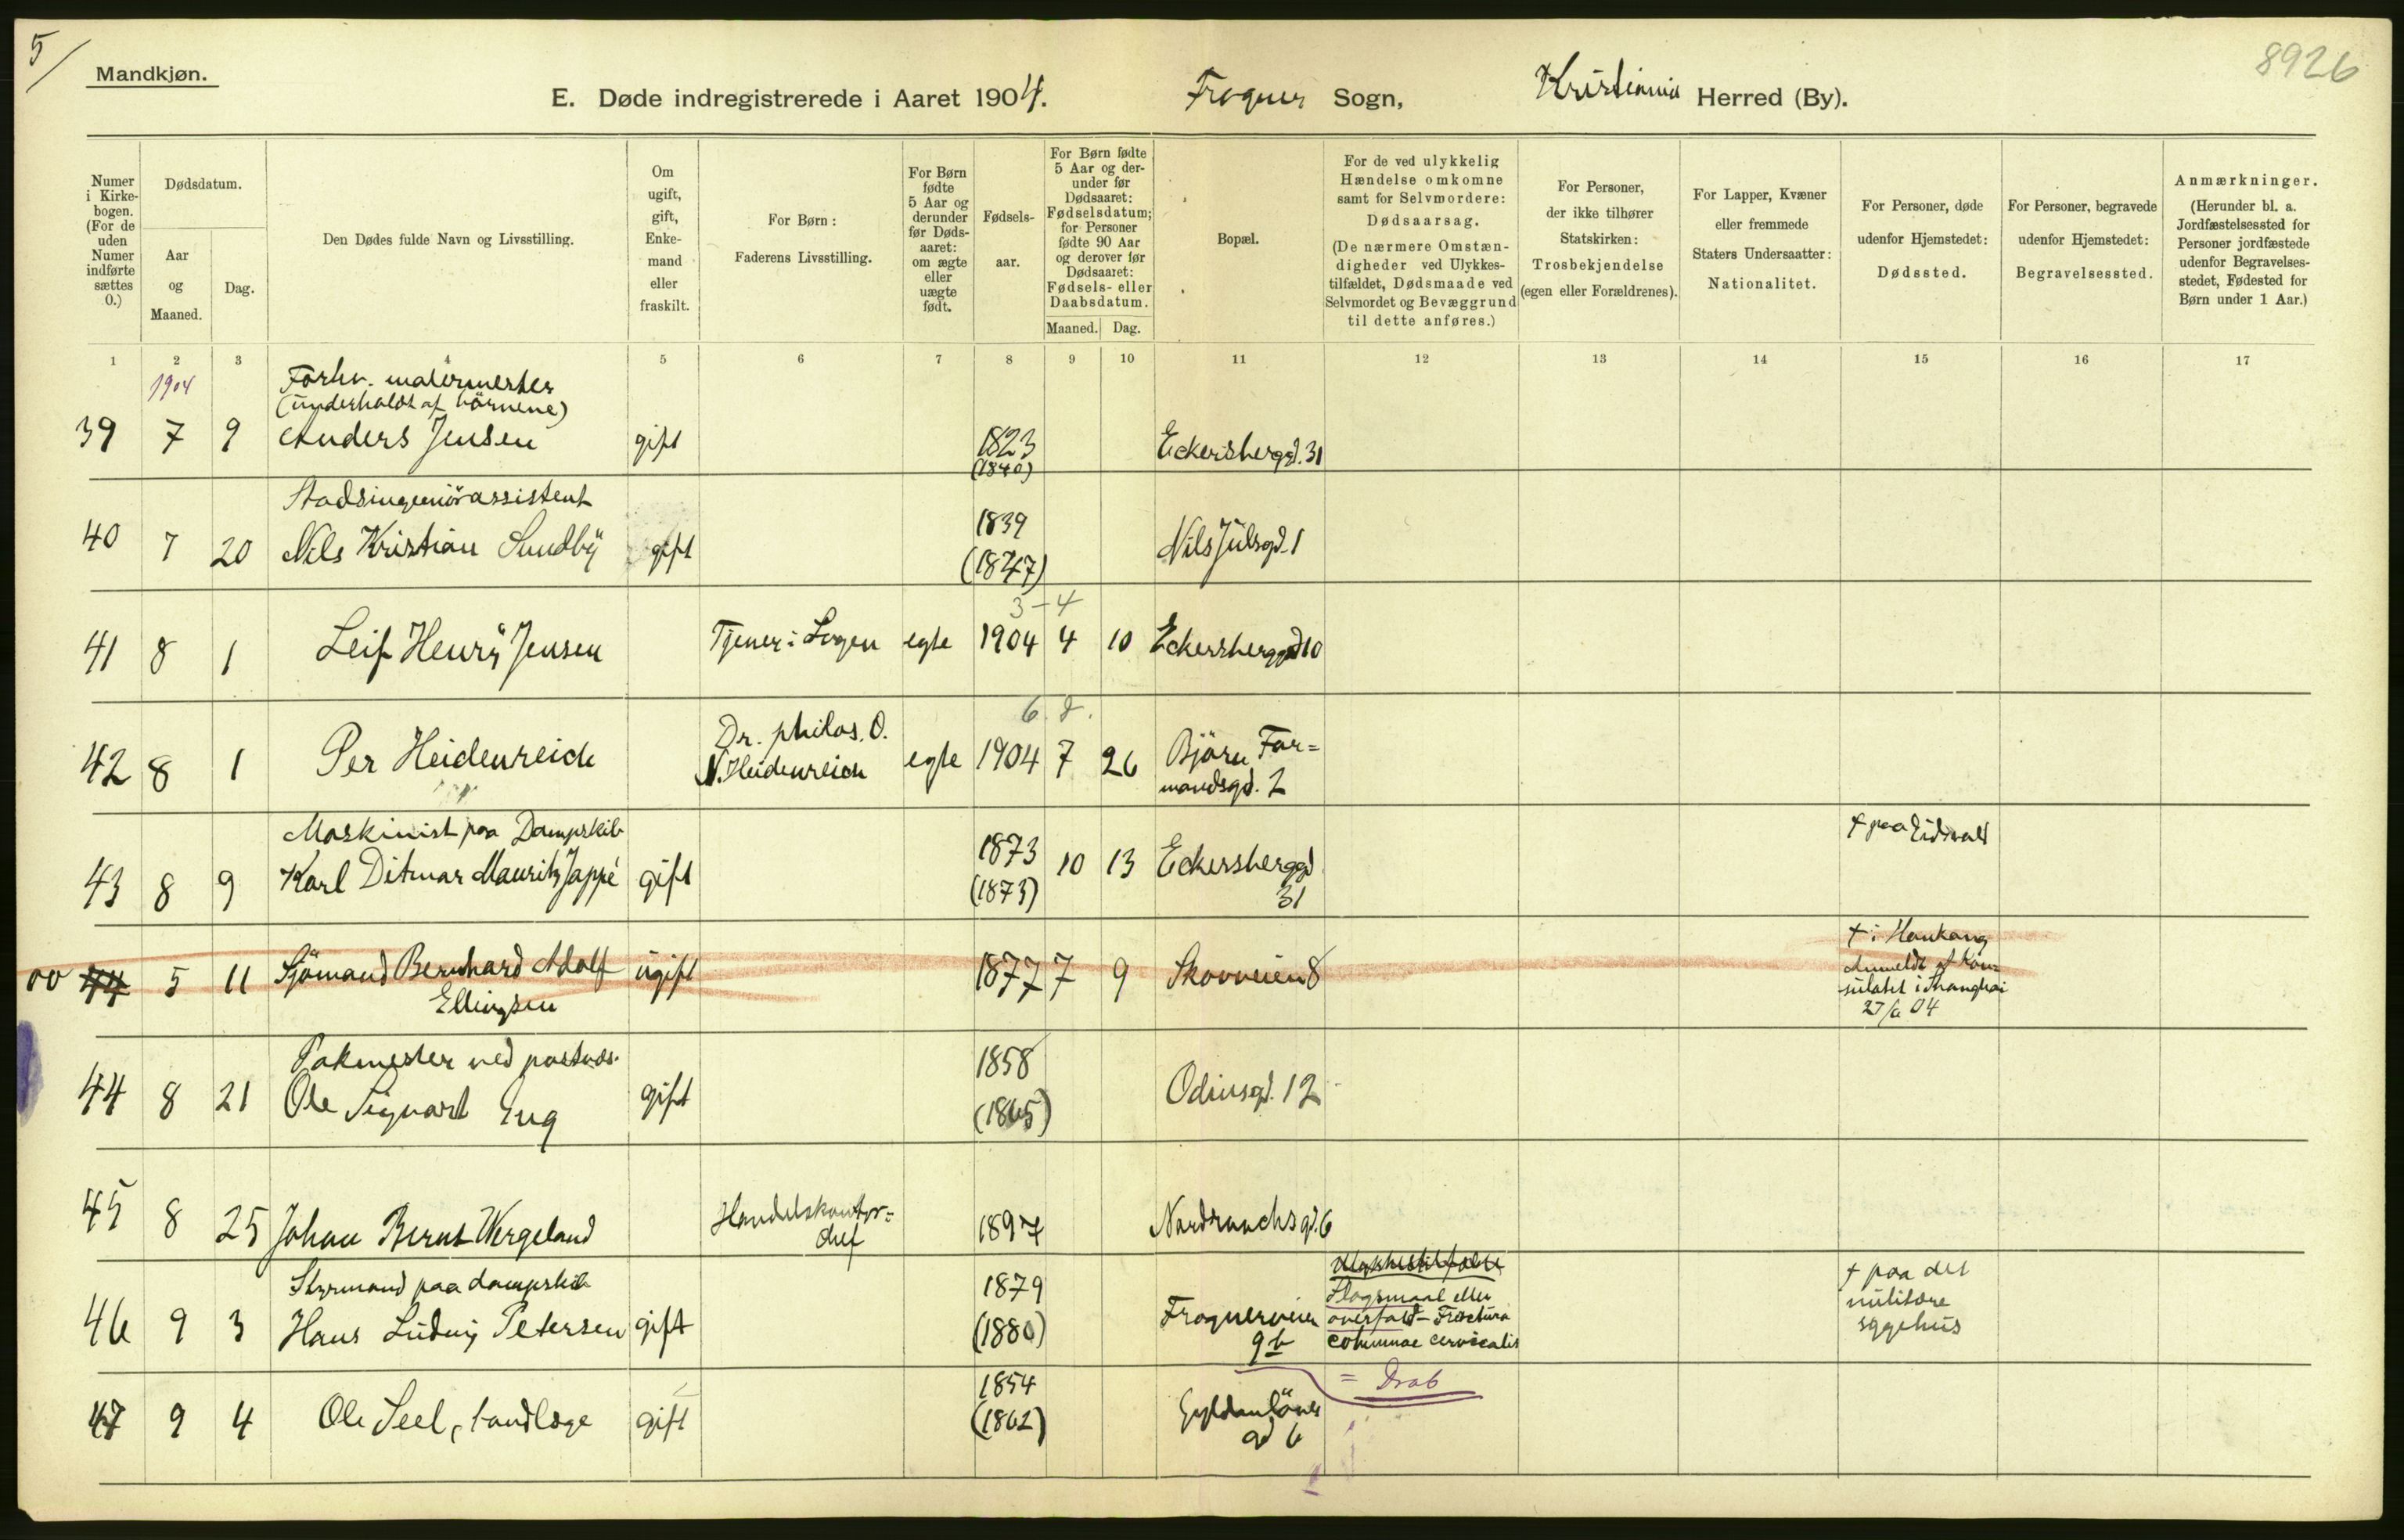 5/
8926
Mandkjøn.
E. Døde indregistrerede i Aaret 1904. Frogner Sogn, Kristiania Herred (By).
Numer i Kirkebogen. (For de uden Numer indførte sættes 0.)
Dødsdatum.
Aar og Maaned.
Dag.
Den Dødes fulde Navn og Livsstilling.
Om ugift, gift, Enkemand eller fraskilt.
For Børn: Faderens Livsstilling.
For Børn fødte 5 Aar og derunder før Dødsaaret: om ægte eller uægte født.
Fødselsaar.
For Børn fødte 5 Aar og derunder før Dødsaaret: Fødselsdatum; for Personer fødte 90 Aar og derover før Dødsaaret: Fødsels- eller Daabsdatum.
Maaned. Dag.
Bopæl.
For de ved ulykkelig Hændelse omkomne samt for Selvmordere: Dødsaarsag. (De nærmere Omstændigheder ved Ulykkestilfældet, Dødsmaade ved Selvmordet og Bevæggrund til dette anføres.)
For Personer, der ikke tilhører Statskirken: Trosbekjendelse (egen eller Forældrenes).
For Lapper, Kvæner eller fremmede Staters Undersaatter: Nationalitet.
For Personer, døde udenfor Hjemstedet: Dødssted.
For Personer, begravede udenfor Hjemstedet: Begravelsessted.
Anmærkninger. (Herunder bl. a. Jordfæstelsessted for Personer jordfæstede udenfor Begravelsesstedet, Fødested for Børn under 1 Aar.)
1 2 3 4 5 6 7 8 9 10 11 12 13 14 15 16 17
1904
Forhv. malermester
(underholdt af börnene)
39 7 9 Anders Jensen gift 1823 Eckersberggd. 31
(1840)
Stadsingeniörassistent
40 7 20 Nils Kristian Sundby gift 1839 Nils Julsgd. 1
(1847)
3-4
41 8 1 Leif Henry Jensen Tjener i Logen egte 1904 4 10 Eckersberggd 10
6 d.
Dr. philos. O.
42 8 1 Per Heidenreich N. Heidenreich egte 1904 7 26 Björn Far=
mandsgd. 2
Maskinist paa Dampskib
43 8 9 Karl Ditmar Mauritz Jappé gift 1873 10 13 Eckersberggd † paa Eidsvold
(1873) 31
00 44 5 11 Sjömand Bernhard Adolf ugift 1877 7 9 Skovveien 8 † i Hankang
Ellingsen
Anmeldt af Kon=
sulatet i Shanghai
27/6 04
Pakmester ved postvæs.
44 8 21 Ole Sigvart Eng gift 1858 Odinsgd. 12
(1865)
45 8 25 Johan Bernt Wergeland Handelskontor= 1897 Nordraachsgd. 6
chef
Styrmand paa dampskib
46 9 3 Hans Ludvig Petersen gift 1879 Frognerveien
(1880) 9b
Slagsmaal eller
overfald - Fractura
columnae cervicalis
= Drab
† paa det
militære
sygehus
47 9 4 Ole Seel, tandlæge gift 1854 Gyldenlöves
(1862) gd 6